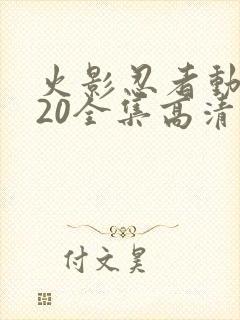 火影忍者動
20全集高清
付文昊